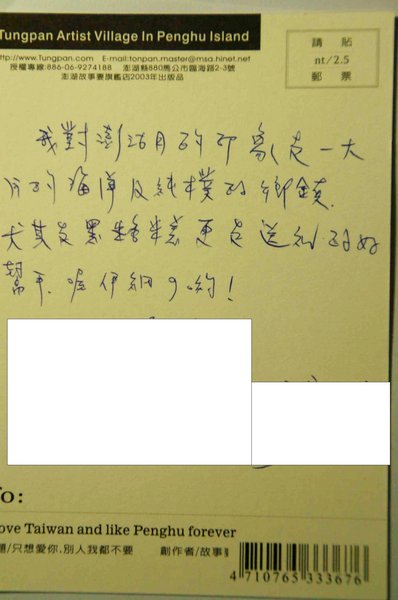 Tungpan Artist Village In Penghu Island
http://www.Tungpan.com E-mail:tonpan.master@msa.hinet.net
授權專線:886-06-9274188 澎湖縣880馬公市臨海路2-3號
澎湖故事妻旗艦店2003年出版品
請 貼
nt/2.5
郵 票
我對澎湖的印象是一大
片的海洋及純樸的鄉鎮.
尤其是黑糖糕更是送禮的好
幫手.喔伊細ㄋ喲!
To:
ove Taiwan and like Penghu forever
題/只想愛你,別人我都不要 創作者/故事
4 710765 333676